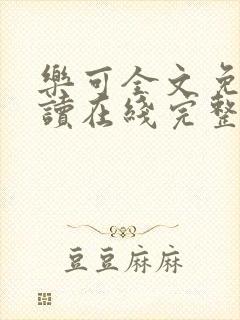 樂可全文免
讀在綫完整
豆豆麻麻